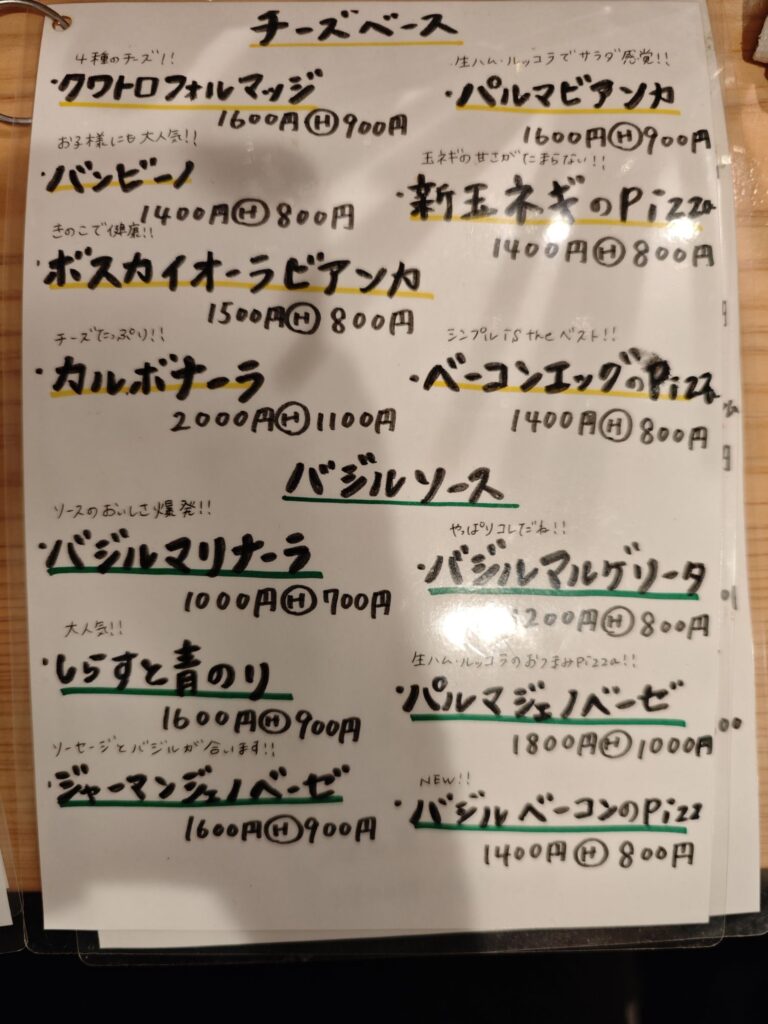 チーズベース
4種のチーズ!!
・クワトロフォルマッジ
1600円Ⓗ900円
生ハム・ルッコラでサラダ感覚!!
・パルマビアンカ
1600円Ⓗ900円
お子様にも大人気!!
・バンビーノ
1400円Ⓗ800円
玉ネギの甘さがたまらない!!
・新玉ネギのPizza
1400円Ⓗ800円
きのこで健康!!
・ボスカイオーラビアンカ
1500円Ⓗ800円
チーズたっぷり!!
・カルボナーラ
2000円Ⓗ1100円
シンプル is the ベスト!!
・ベーコンエッグのPizz
1400円Ⓗ800円
バジルソース
ソースのおいしさ爆発!!
・バジルマリナーラ
1000円Ⓗ700円
やっぱりコレだね!!
・バジルマルゲリータ
1200円Ⓗ800円
大人気!!
・しらすと青のり
1600円Ⓗ900円
生ハム・ルッコラのおつまみPizza!!
・パルマジェノベーゼ
1800円Ⓗ1000円
ソーセージとバジルが合います!!
・ジャーマンジェノベーゼ
1600円Ⓗ900円
NEW!!
・バジルベーコンのPizz
1400円Ⓗ800円